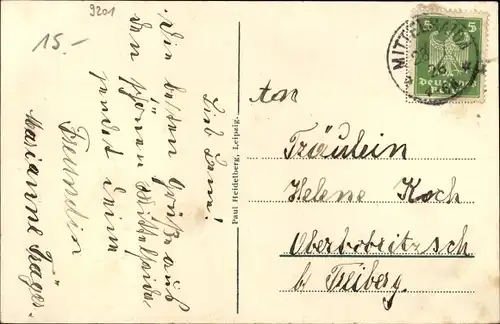 9201
15.-
Lieb Lene!
Die besten Grüße aus
den schönen Mittelsaida
sendet deine
Freundin
Marianne Träger.
Paul Heidelberg, Leipzig.
5 5
MITTELSAIDA
26
An
Fräulein
Helene Koch
Oberbobritzsch
b. Freiberg.